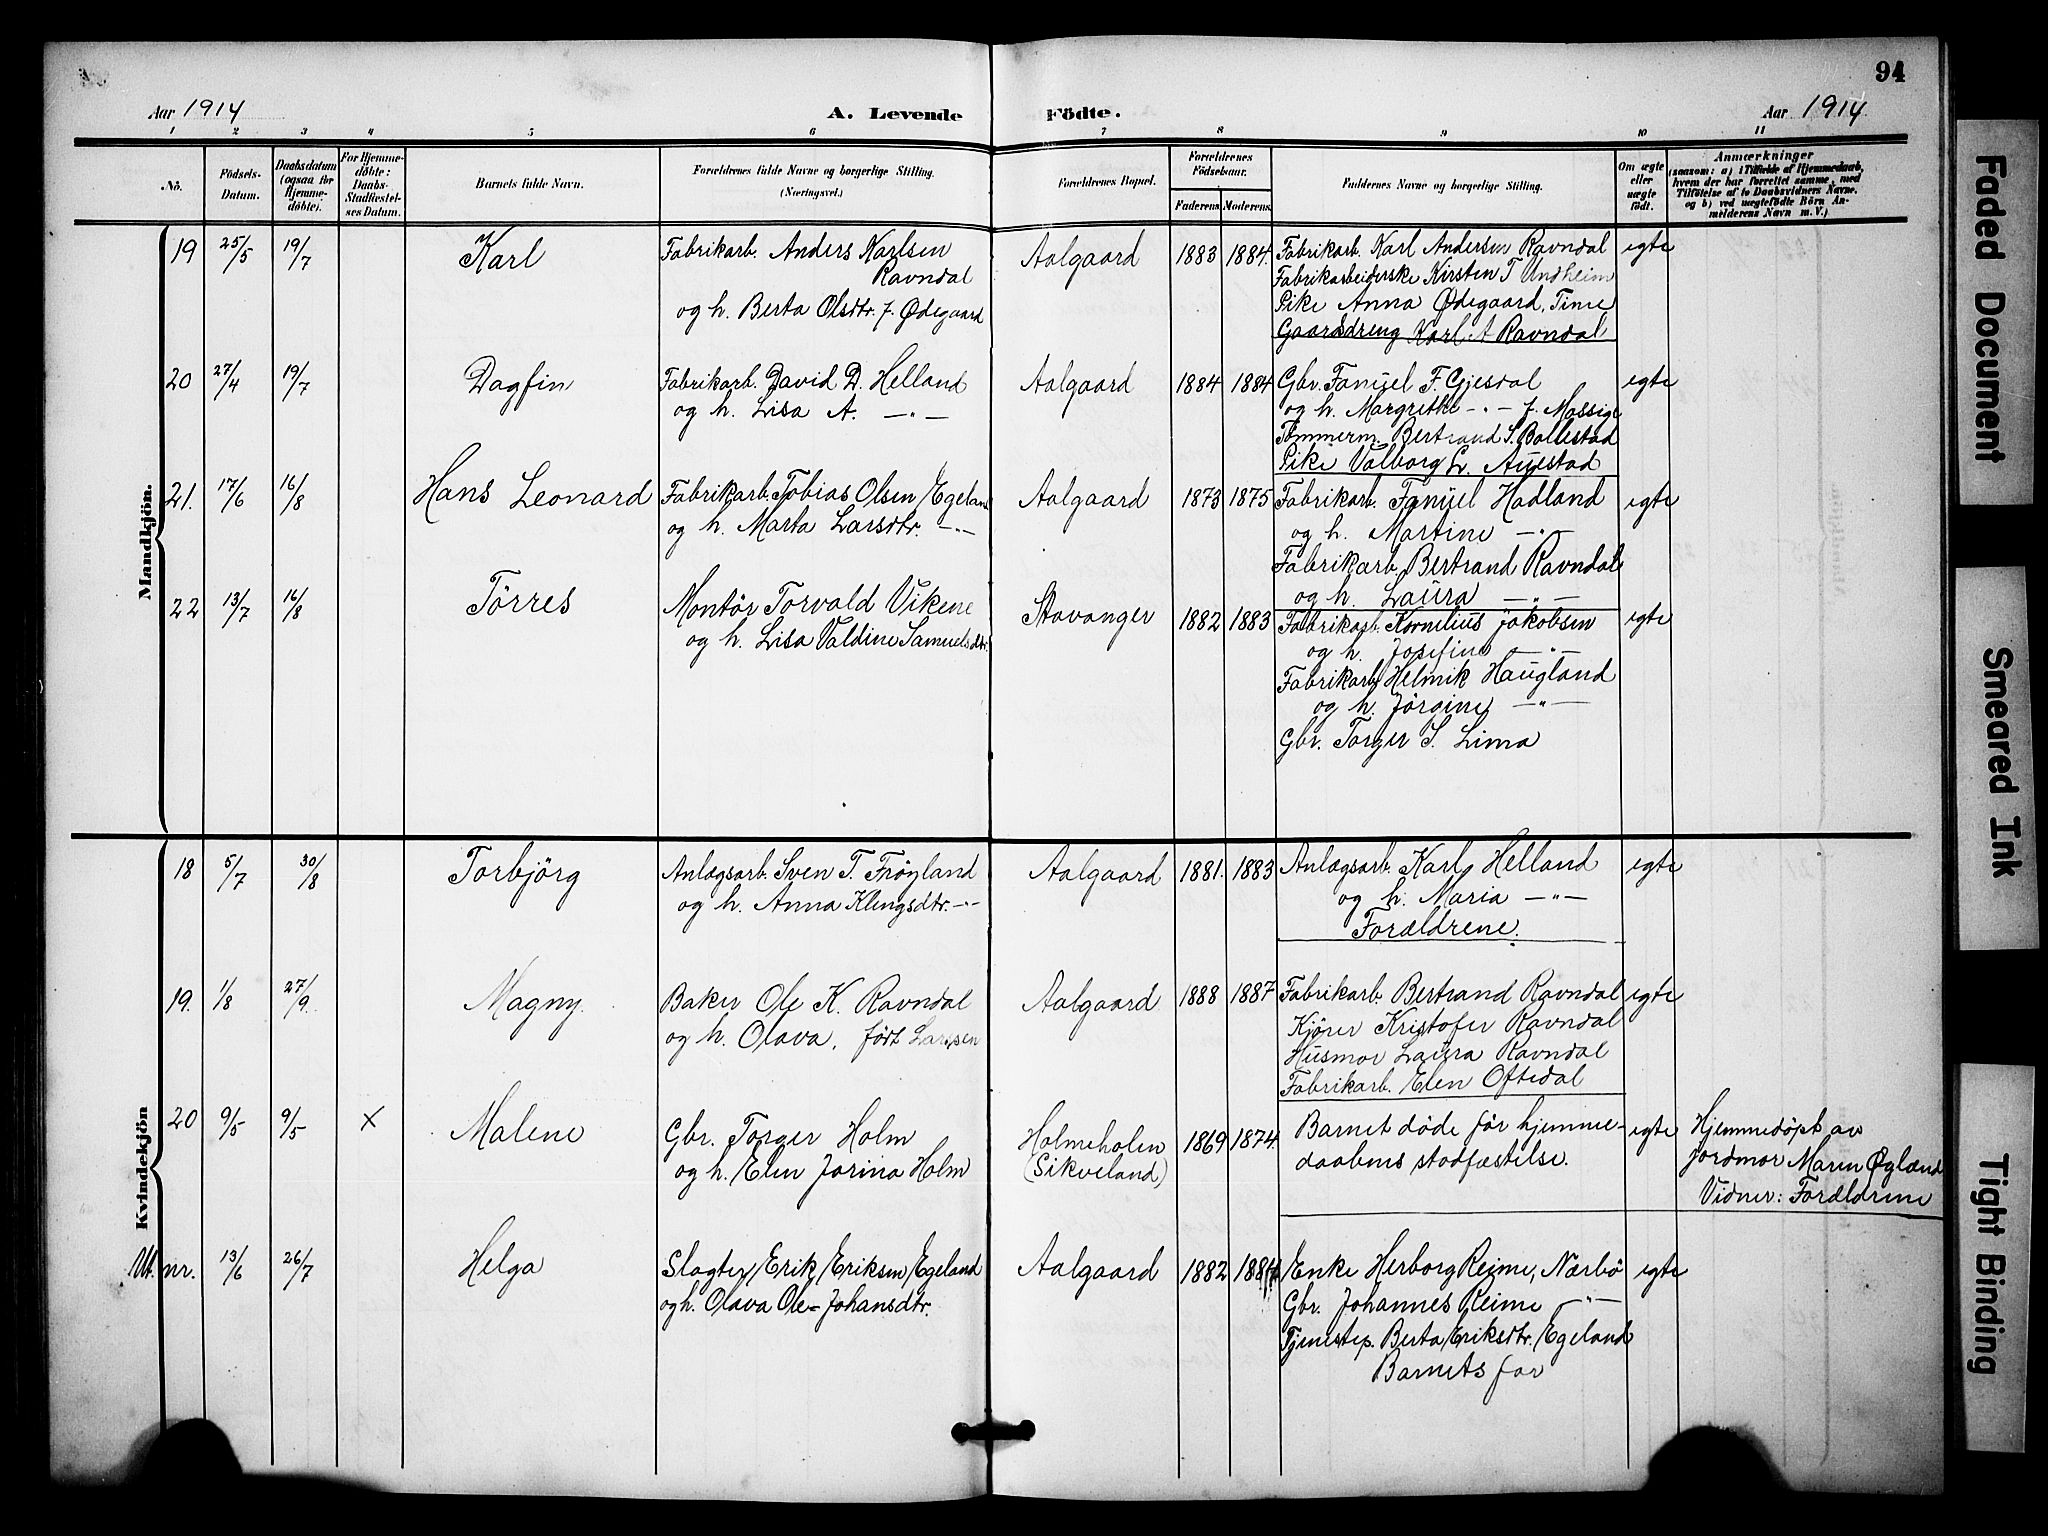 94
Aar 1914
A. Levende Födte.
Aar 1914
1 2 3 4 5 6 7 8 9 10 11
No.
Födsels-Datum.
Daabsdatum (ogsaa for Hjemme-döbte).
For Hjemme-döbte: Daabs-Stadfæstel-ses Datum.
Barnets fulde Navn.
Forældrenes fulde Navne og borgerlige Stilling.
(Næringsvei.)
Forældrenes Bopæl.
Forældrenes Födselsaar.
Faderens. Moderens.
Faddernes Navne og borgerlige Stilling.
Om ægte eller uægte födt.
Anmærkninger
(saasom: a) i Tilfælde af Hjemmedaab, hvem der har forrettet samme, med Tilföielse af to Daabsvidners Navne, og b) ved uægtefödte Börn An-melderens Navn m. V.)
Mandkjön.
19 25/5 19/7 Karl
Fabrikarb. Anders Karlsen
Ravndal
og h. Berta Olsdtr. f. Ødegaard
Aalgaard 1883 1884.
Fabrikarb. Karl Andersen Ravndal
Fabrikarbeiderske Kirsten T Undheim
Pike Anna Ødegaard, Time
Gaardsdreng Karl A Ravndal
egte
20 27/4 19/7 Dagfin
Fabrikarb. David D. Helland
og h. Lisa A. —〃—
Aalgaard 1884 1884
Gbr. Fanuel F. Gjesdal
og h. Margrethe —〃— f. Mossige
Tømmerm. Bertrand S. Bollestad
Pike Valborg L. Auestad
egte
21. 17/6 16/8 Hans Leonard
Fabrikarb. Tobias Olsen Egeland
og h. Marta Larsdtr. —〃—
Aalgaard 1873 1875
Fabrikarb. Fanuel Hadland
og h. Martine —〃—
Fabrikarb. Bertrand Ravndal
og h. Laura —〃—
egte
22 13/7 16/8 Tørres
Montør Torvald Vikene
og h. Lisa Valdine Samuelsdtr.
Stavanger 1882 1883
Fabrikarb. Kornelius Jakobsen
og h. Josefine —〃—
Fabrikarb. Helmik Haugland
og h. Jørgine —〃—
Gbr. Torger S. Lima
egte
Kvindekjön
18 5/7 30/8 Torbjörg
Anlægsarb. Sven T. Frøyland
og h. Anna Klengsdtr. —〃—
Aalgaard 1881. 1883
Anlægsarb. Karl Helland
og h. Maria —〃—
Forældrene.
egte
19. 1/8 27/9. Magny.
Baker Ole K. Ravndal
og h. Olava, født Larssen
Aalgaard 1888 1887
Fabrikarb. Bertrand Ravndal
Kjører Kristofer Ravndal
Husmor Laura Ravndal
Fabrikarb. Elen Oftedal
egte
20 9/5 9/5 X Malene
Gbr. Torger Holm
og h. Elen Jorina Holm
Holmeholen
(Sikveland)
1869 1874.
Barnet døde før hjemme-
daabens stadfæstelse.
egte
Hjemmedöpt av
Jordmor Maren Øglænd
Vidner: Forældrene
Ut. nr. 13/6 26/7 Helga
Slagter Erik Eriksen Egeland
og h. Olava Ole-Johansdtr.
Aalgaard 1882
Enke Herborg Reime, Nærbö
Gbr. Johannes Reime —〃—
Tjenestep. Berta Eriksdtr. Egeland
Barnets far
egte
Faded Document
Smeared Ink
Tight Binding